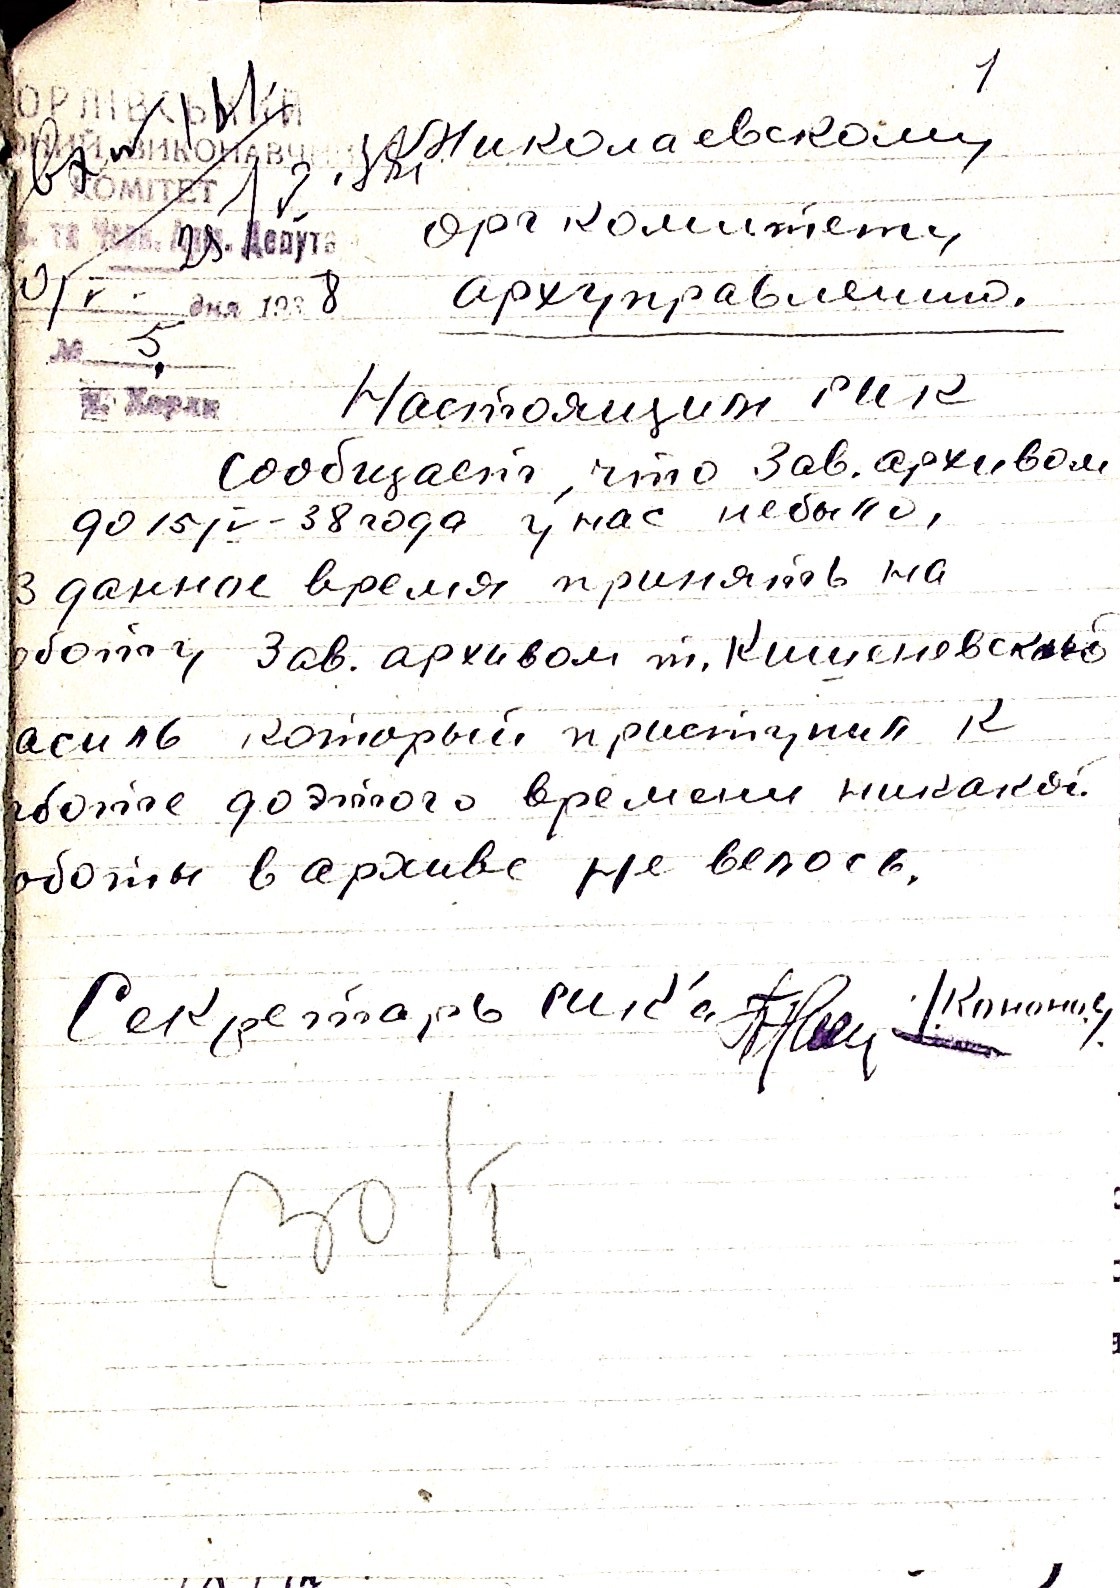 1
ОРЛІВСЬКИЙ
ВИКОНАВЧ
КОМІТЕТ
та Депута
дня 1938
№ 5
Х. Хорли
Николаевскому
орг комитету
архуправлению.
Настоящим РИК
сообщает, что Зав. архивом
до 15/IV-38 года у нас небыло,
В данное время принять на
оботу Зав. архивом т. Кишеневский
асиль который приступил к
аботе доэтого времени никакой
оботы в архиве не велось.
Секретарь РИК'а
30/I